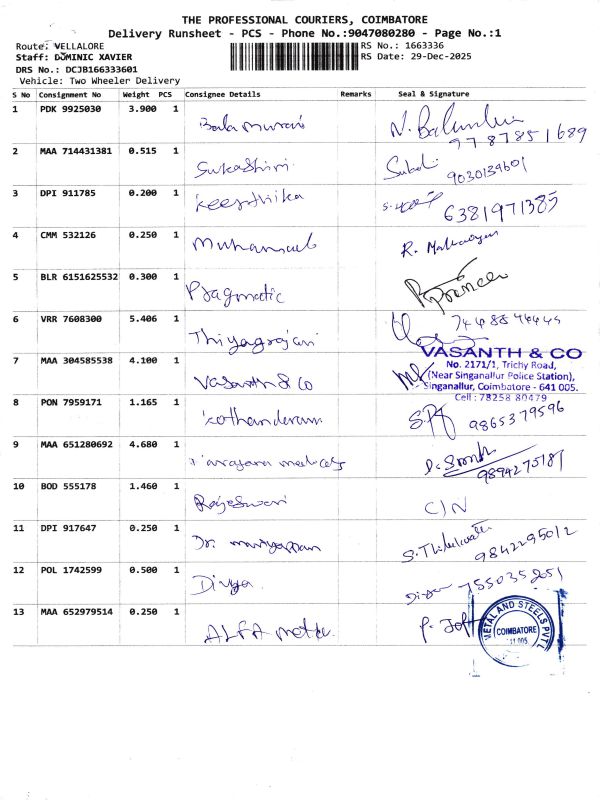 THE PROFESSIONAL COURIERS, COIMBATORE
Delivery Runsheet - PCS - Phone No.:9047080280 - Page No.:1
Route: VELLALORE
RS No.: 1663336
Staff: DOMINIC XAVIER
RS Date: 29-Dec-2025
DRS No.: DCJB166333601
Vehicle: Two Wheeler Delivery
S No Consignment No Weight PCS Consignee Details Remarks Seal & Signature
1 PDK 9925030 3.900 1 Balamurani
9787851689
2 MAA 714431381 0.515 1 Sukashini
9030139601
3 DPI 911785 0.200 1 Keerthika
6381971385
4 CMM 532126 0.250 1
5 BLR 6151625532 0.300 1 Pragmatic
6 VRR 7608300 5.406 1 Thiyagrajan
7 MAA 304585538 4.100 1 Vasanth & Co
VASANTH & CO
No. 2171/1, Trichy Road,
(Near Singanallur Police Station),
Singanallur, Coimbatore - 641 005.
Cell : 78258 80479
8 PON 7959171 1.165 1 Kothandaram
9865379596
9 MAA 651280692 4.680 1
9894275181
10 BOD 555178 1.460 1 Rajeswari
C/N
11 DPI 917647 0.250 1 Dr. mariyappan
9842295012
12 POL 1742599 0.500 1 Divya
7550352051
13 MAA 652979514 0.250 1 ALFA metal
METAL AND STEELS PVT L
COIMBATORE